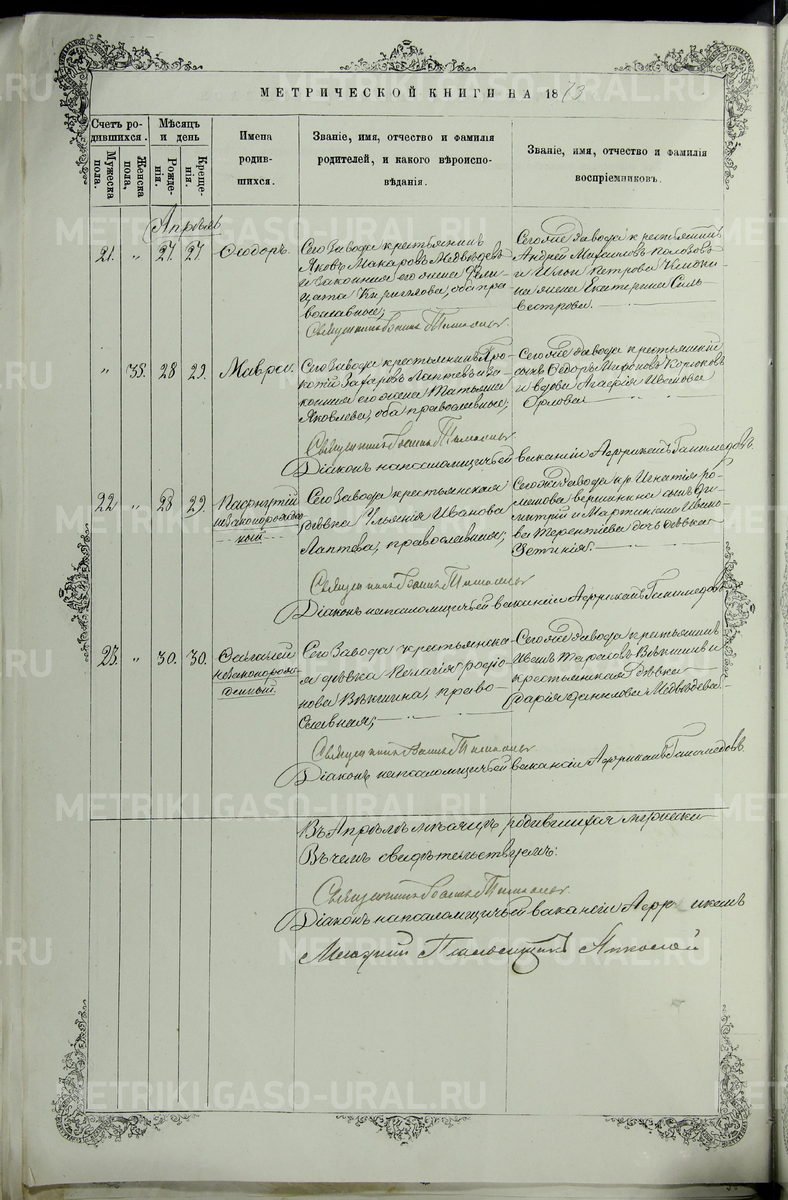 МЕТРИЧЕСКОЙ КНИГИ НА 1873
Счетъ ро-
дившихся.
Мужеска
пола.
Женска
пола,
Мѣсяцъ
и день
Рожде-
нія.
Креще-
нія.
Имена
родив-
шихся.
Званіе, имя, отчество и фамилія
родителей, и какого вѣроиспо-
вѣданія.
Званіе, имя, отчество и фамилія
воспріемниковъ.
Апрѣль
21. " 27. 27. Ѳеодоръ.
Сего Завода крестьянинъ
Яковъ Макаровъ Медвѣдевъ
и законная его жена Фели-
цата Кириллова, оба пра-
вославные;
Священникъ Іоаннъ
Сего же Завода крестьянинъ
Андрей Михаиловъ
и Петрова
на жена Екатерина Силь-
вестрова.
" 38. 28 29. Мавра.
Сего Завода крестьянинъ Про-
копій Захаровъ Лаптевъ и за-
конная его жена Татьяна
Яковлева, оба православные;
Священникъ Іоаннъ
Діаконъ на псаломщичьей вакансіи Африканъ Ганимедовъ.
Сего же Завода крестьянскій
сынъ Ѳедоръ Корюковъ
и вдова Ивановна
Орлова
22. " 28 29. Пафнутій
незаконорожден-
ный
Сего Завода крестьянская
дѣвка Ульянія Иванова
Лаптева, православная;
Священникъ Іоаннъ
Діаконъ на псаломщичьей вакансіи Африканъ Ганимедовъ
Сего же Завода кр. Игнатія Ро-
манова сынъ Ди-
митрій и Ивано-
ва Терентіева дочь дѣвка
23. " 30. 30.
незаконорож-
денный.
Сего Завода крестьянска-
я дѣвка Пелагія Родіо-
нова Вѣкшина, право-
славная;
Священникъ Іоаннъ
Діаконъ на псаломщичьей вакансіи Африканъ Ганимедовъ.
Сего же Завода крестьянинъ
Иванъ Тарасовъ Вѣкшинъ и
крестьянская дѣвка
Дарія Данилова Медвѣдева.
Въ Апрѣлѣ мѣсяцѣ родившихся
Въ чемъ свидѣтельствуемъ:
Священникъ Іоаннъ
Діаконъ на псаломщичьей вакансіи Африканъ
METRIKI.GASO-URAL.RU